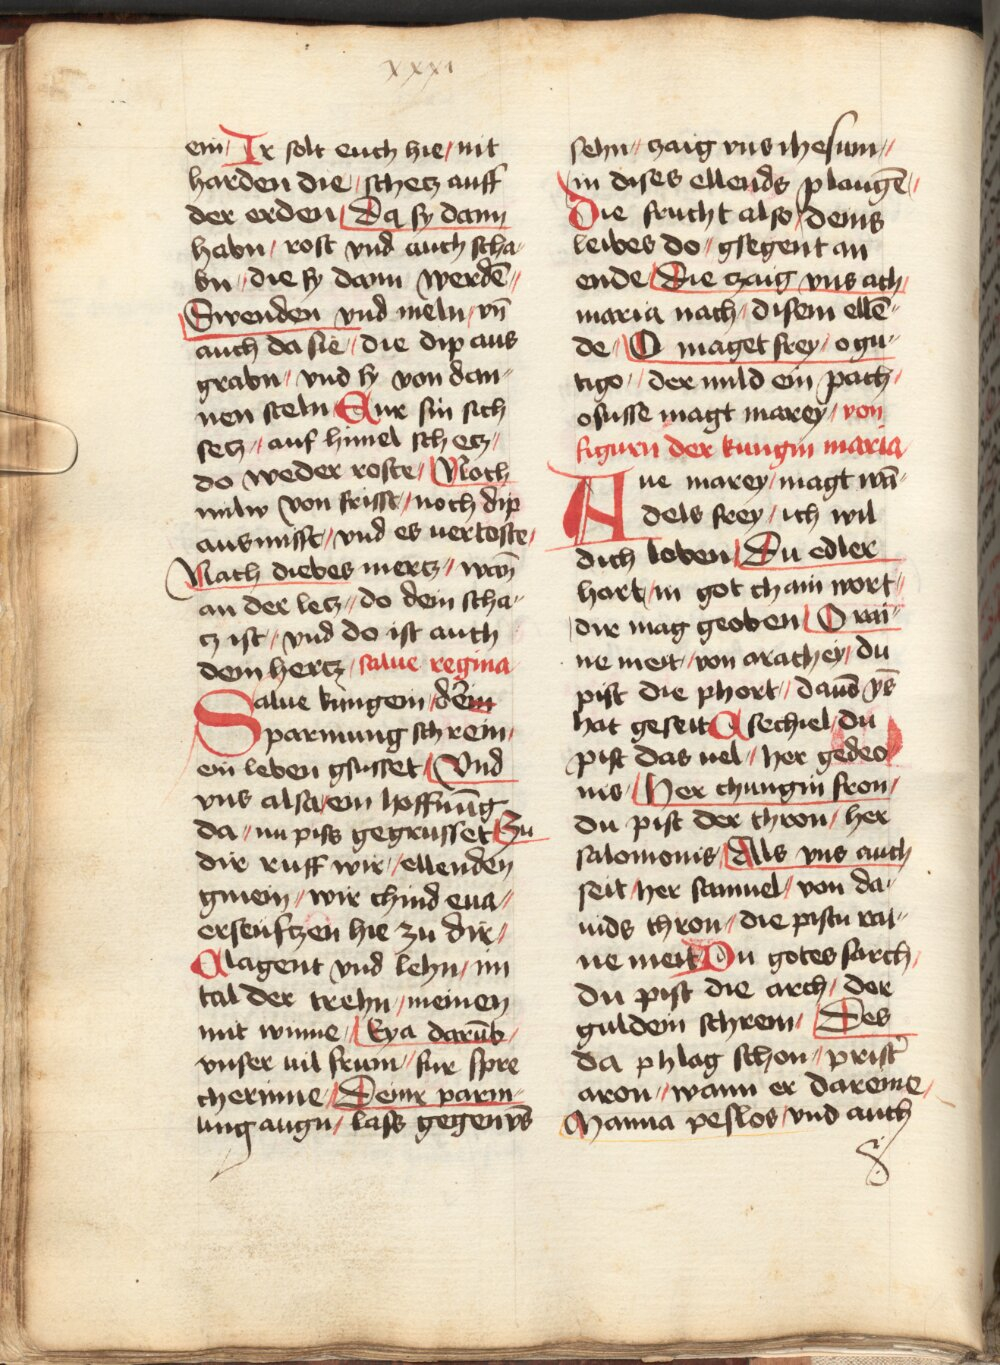 xxxi
ein / Ir solt euch hie / nit
harden die / schetz auff
der erden / Da sy dann
habn / rost vnd auch scha-
bn / die sy dann werdē //
Swenden vnd meln / vn̄
auch da sie / die dip aus
grabn / vnd sy von dan-
nen steln Eur sin sich
setz / auf himel schetz /
do weder roste / Noch
milw von frisst / noch dip
aus nusst / vnd es verloste /
Nach diebes mertz / wan̄
an der letz / do dem scha-
tz ist / vnd do ist auch
dem hertz / salue regina
Salue kungein / dem
Sparmung schrein /
ein leben gsusset / Vnd
vns alsa / ein hoffnūg
da / nu piss gegrusset Zu
dir ruff wir / ellenden
gmein / wir chind eua //
erseufczen hie zu dir /
Clagent vnd lehn / im
tal der trehn / meinen
mit wime / Eya darūb /
vnser uil frum / fur spre
cherinne / Deinr parm-
ung augn / lass gegen vs̄
sehn / zaig vns ihesum //
in dises ellends plaugē /
Die frucht also / deins
leibes do / gsegent an
ende / Die zaig vns ach /
maria nach / disem ellē-
de / O maget frey / o gu-
tigo / der mild ein pach /
o susse magt marey / von
figurn der kungin maria
Aue marey / magt wā-
dels frey / ich wil
dich loben / Du edler
hort / in got cham wort /
dir mag geoben / O rai-
ne meit / von arathey / du
pist die phort / dauō ys̄
hat geseit Esechiel / du
pist das uel / her gedeo
nis / Her chungin fron /
du pist der thron / her
salomonis / Als vns auch
seit / her samuel / von da-
uids thron / die pistu rai-
ne meit Du gotes sarch /
du pist die arch / der
guldein schrein / Des
da phlag schon / prist̄
aron / wann er dareine /
Manna peslos / vnd auch